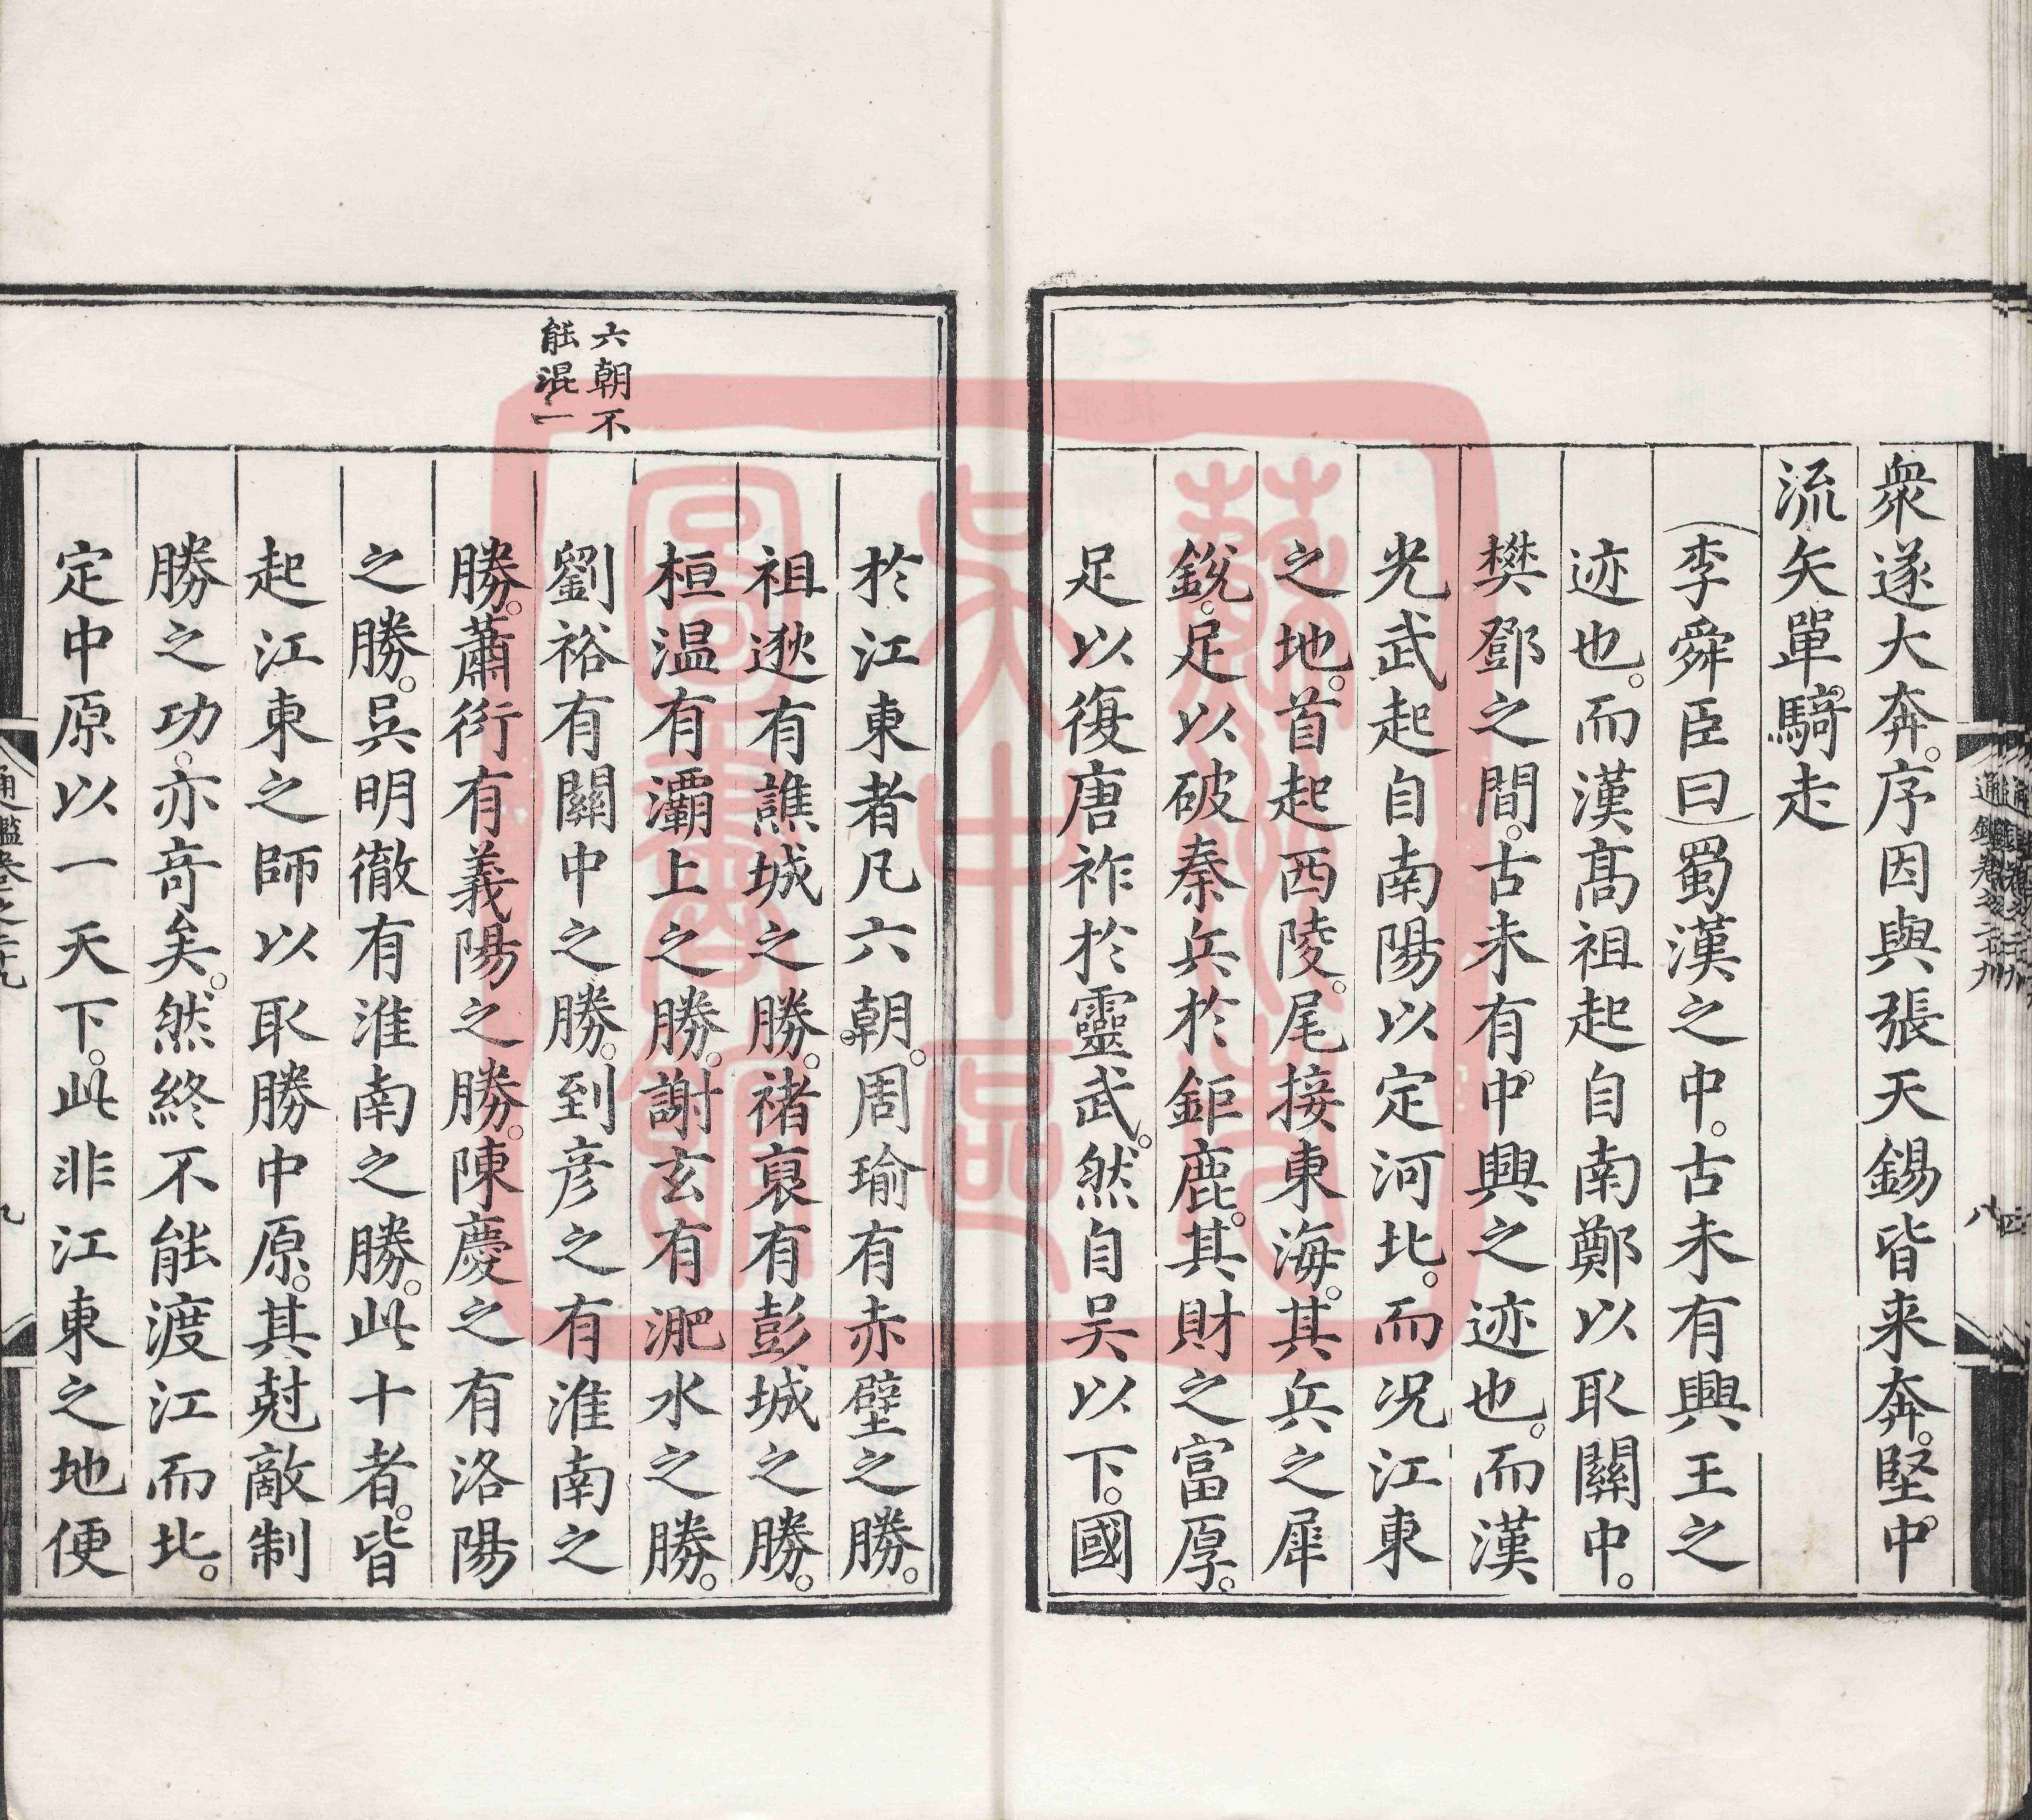 衆遂大奔。序因與張天錫皆来奔。堅中
流矢單騎走
(李舜臣曰)蜀漢之中。古未有興王之
迹也。而漢髙祖起自南鄭以取關中。
樊鄧之間。古未有中興之迹也。而漢
光武起自南陽以定河北。而况江東
之地。首起西陵。尾接東海。其兵之犀
銳。足以破秦兵於鉅鹿。其財之富厚。
足以復唐祚於靈武。然自吴以下。國
通鑑卷之二十九
八
六朝不
能混一
於江東者凡六朝。周瑜有赤壁之勝。
祖逖有譙城之勝。褚裒有彭城之勝。
桓温有灞上之勝。謝玄有淝水之勝。
劉裕有關中之勝。到彦之有淮南之
勝。蕭衍有義陽之勝。陳慶之有洛陽
之勝。吳明徹有淮南之勝。此十者。皆
起江東之師以取勝中原。其尅敵制
勝之功。亦竒矣。然終不能渡江而北。
定中原以一天下。此非江東之地便
通鑑卷之二十九
九
蘇州市
吴中區
圖書館